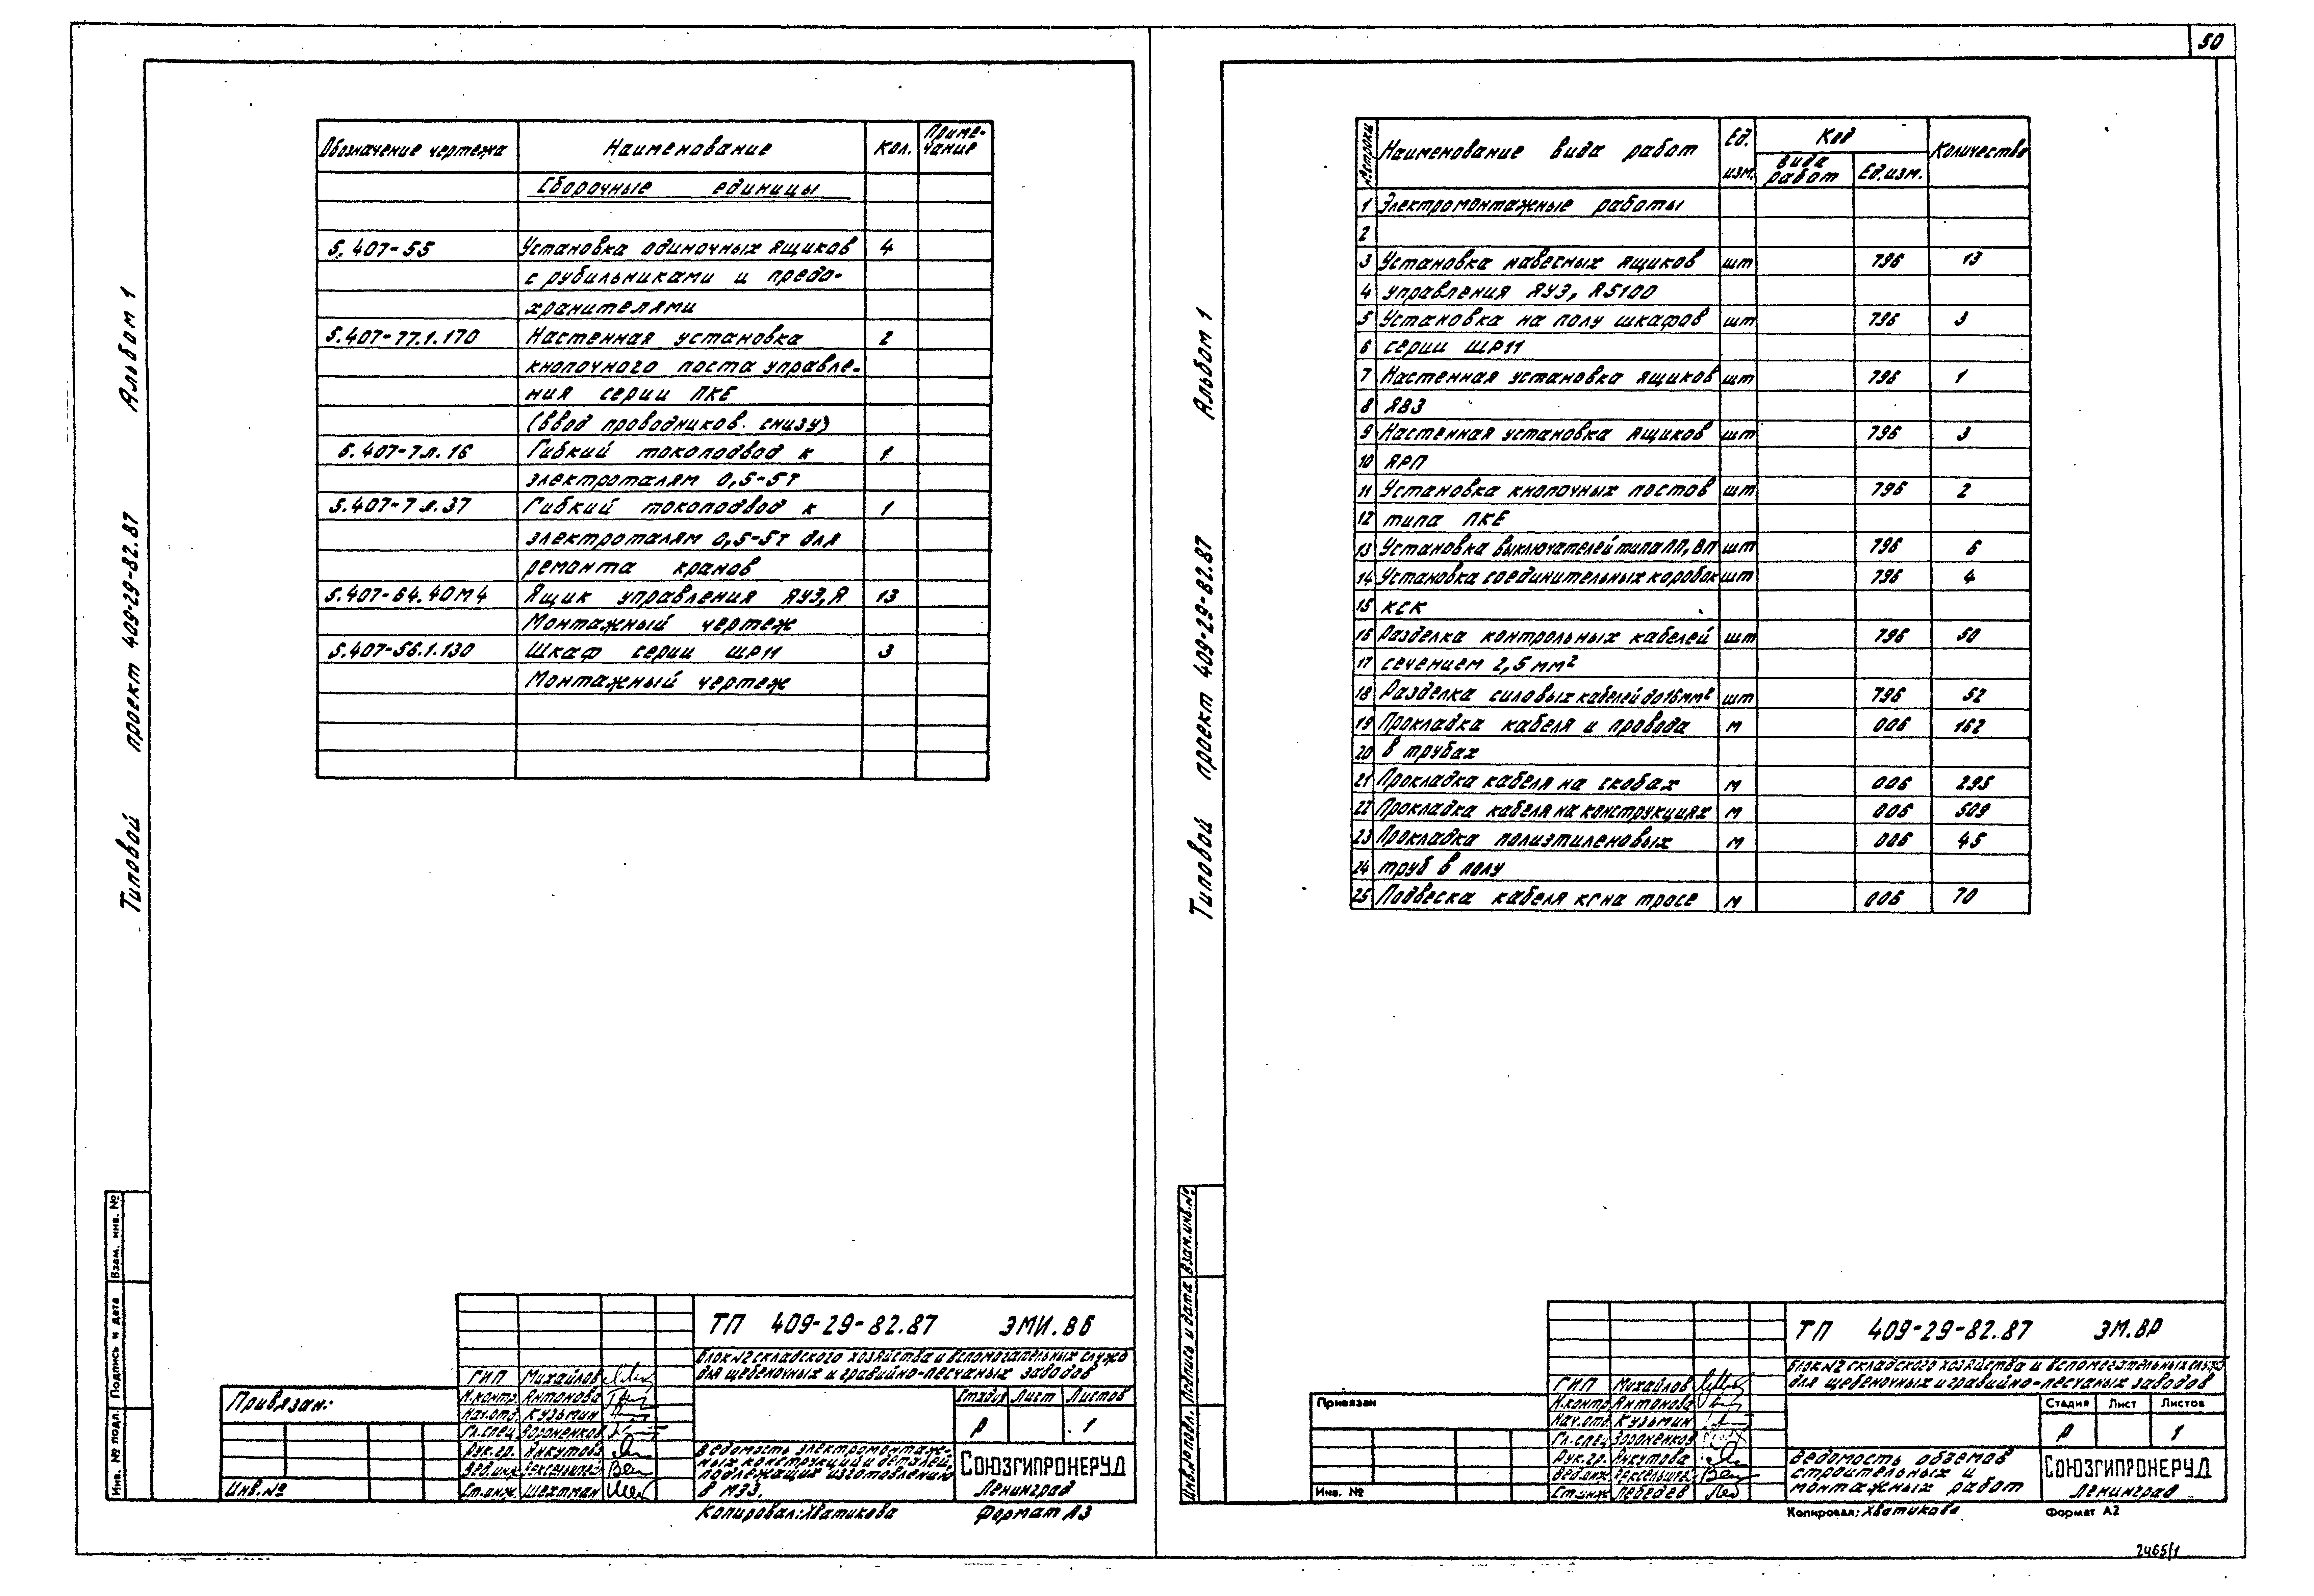 50
Альбом 1
проект 409-29-82.87
Типовой
Обозначение чертежа Наименование Кол. Приме-
чание
Сборочные единицы
5.407-55 Установка одиночных ящиков 4
с рубильниками и предо-
хранителями
5.407-77.1.170 Настенная установка 2
кнопочного поста управле-
ния серии ПКЕ
(ввод проводников снизу)
5.407-7л.16 Гибкий токоподвод к 1
электроталям 0,5-5т
5.407-7л.37 Гибкий токоподвод к 1
электроталям 0,5-5т для
ремонта кранов
5.407-64.40М4 Ящик управления ЯУЭ, Я 13
Монтажный чертеж
5.407-56.1.130 Шкаф серии ШР11 3
Монтажный чертеж
Инв. № подл. Подпись и дата Взам. инв. №
Привязан:
Инв.№
ТП 409-29-82.87 ЭМИ.ВБ
Блок №2 складского хозяйства и вспомогательных служб
для щебеночных и гравийно-песчаных заводов
ГИП Михайлов
Н.контр. Антонова
Нач.отд. Кузьмин
Гл.спец. Вороненков
Рук.гр. Янкутова
Вед.инж.
Ст.инж. Шехтман
Стадия Лист Листов
Р 1
Ведомость электромонтаж-
ных конструкций и деталей,
подлежащих изготовлению
в МЭЗ.
Союзгипронеруд
Ленинград
Копировал: Хватикова Формат А3
Альбом 1
проект 409-29-82.87
Типовой
№ строки Наименование вида работ Ед. изм. Код Количество
вида работ Ед.изм.
1 Электромонтажные работы
2
3 Установка навесных ящиков шт 796 13
4 управления ЯУЭ, Я5100
5 Установка на полу шкафов шт 796 3
6 серии ШР11
7 Настенная установка ящиков шт 796 1
8 ЯВЗ
9 Настенная установка ящиков шт 796 3
10 ЯРП
11 Установка кнопочных постов шт 796 2
12 типа ПКЕ
13 Установка выключателей типа ПП, ВП шт 796 6
14 Установка соединительных коробок шт 796 4
15 КСК
16 Разделка контрольных кабелей шт 796 50
17 сечением 2,5 мм²
18 Разделка силовых кабелей до 16мм² шт 796 52
19 Прокладка кабеля и провода м 006 162
20 в трубах
21 Прокладка кабеля на скобах м 006 295
22 Прокладка кабеля на конструкциях м 006 509
23 Прокладка полиэтиленовых м 006 45
24 труб в полу
25 Подвеска кабеля КГ на тросе м 006 70
Инв.№ подл. Подпись и дата Взам.инв.№
Привязан
Инв. №
ТП 409-29-82.87 ЭМ.ВР
Блок №2 складского хозяйства и вспомогательных служб
для щебеночных и гравийно-песчаных заводов
ГИП Михайлов
Н.контр. Антонова
Нач.отд. Кузьмин
Гл.спец. Вороненков
Рук.гр. Янкутова
Вед.инж.
Ст.инж. Лебедев
Стадия Лист Листов
Р 1
Ведомость объемов
строительных и
монтажных работ
Союзгипронеруд
Ленинград
Копировал: Хватикова Формат А2
2465/1